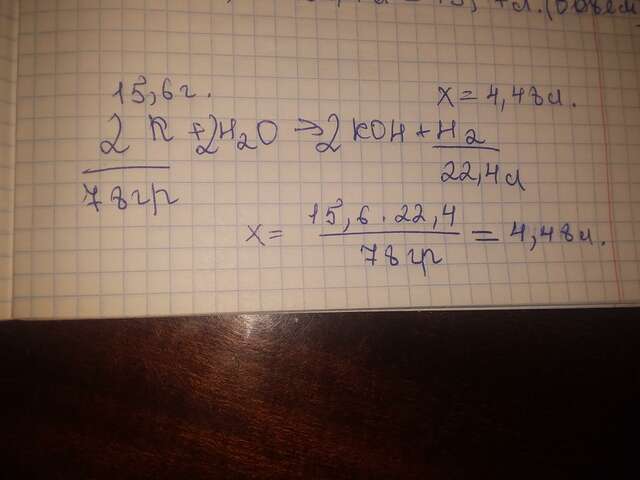 (объем
15,6г.
x = 4,48л.
2K + 2H2O → 2KOH + H2
78гр
22,4л
x = 15,6 · 22,4 / 78гр = 4,48л.